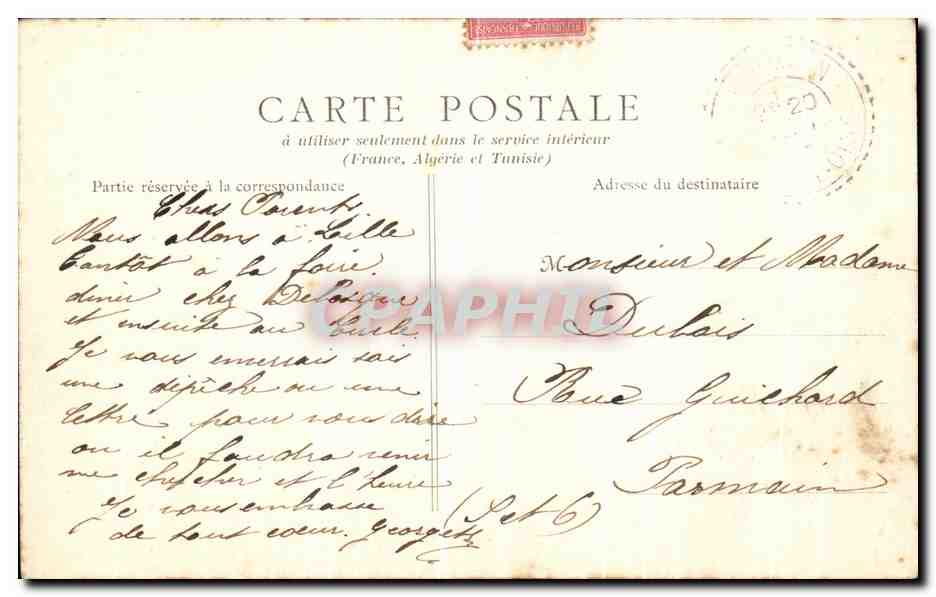 CARTE POSTALE
à utiliser seulement dans le service intérieur
(France, Algérie et Tunisie)
Partie réservée à la correspondance
Chers Parents.
Nous allons à Lille
tantôt à la foire.
diner chez
et ensuite au
Je vous enverrais sois
une dipêche ou une
lettre pour vous dire
ou il faudra venir
me chercher et l'heure
Je vous embrasse
de tout coeur. Georgette
Adresse du destinataire
Monsieur et Madame
Dubois
Rue Guichard
Parmain
(S et O)
CPAPHIL
20